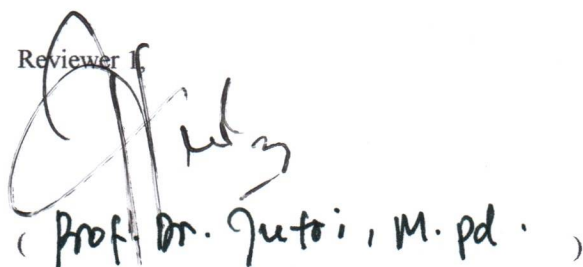 Reviewer 1,
( Prof. Dr. Jufri, M.pd. )